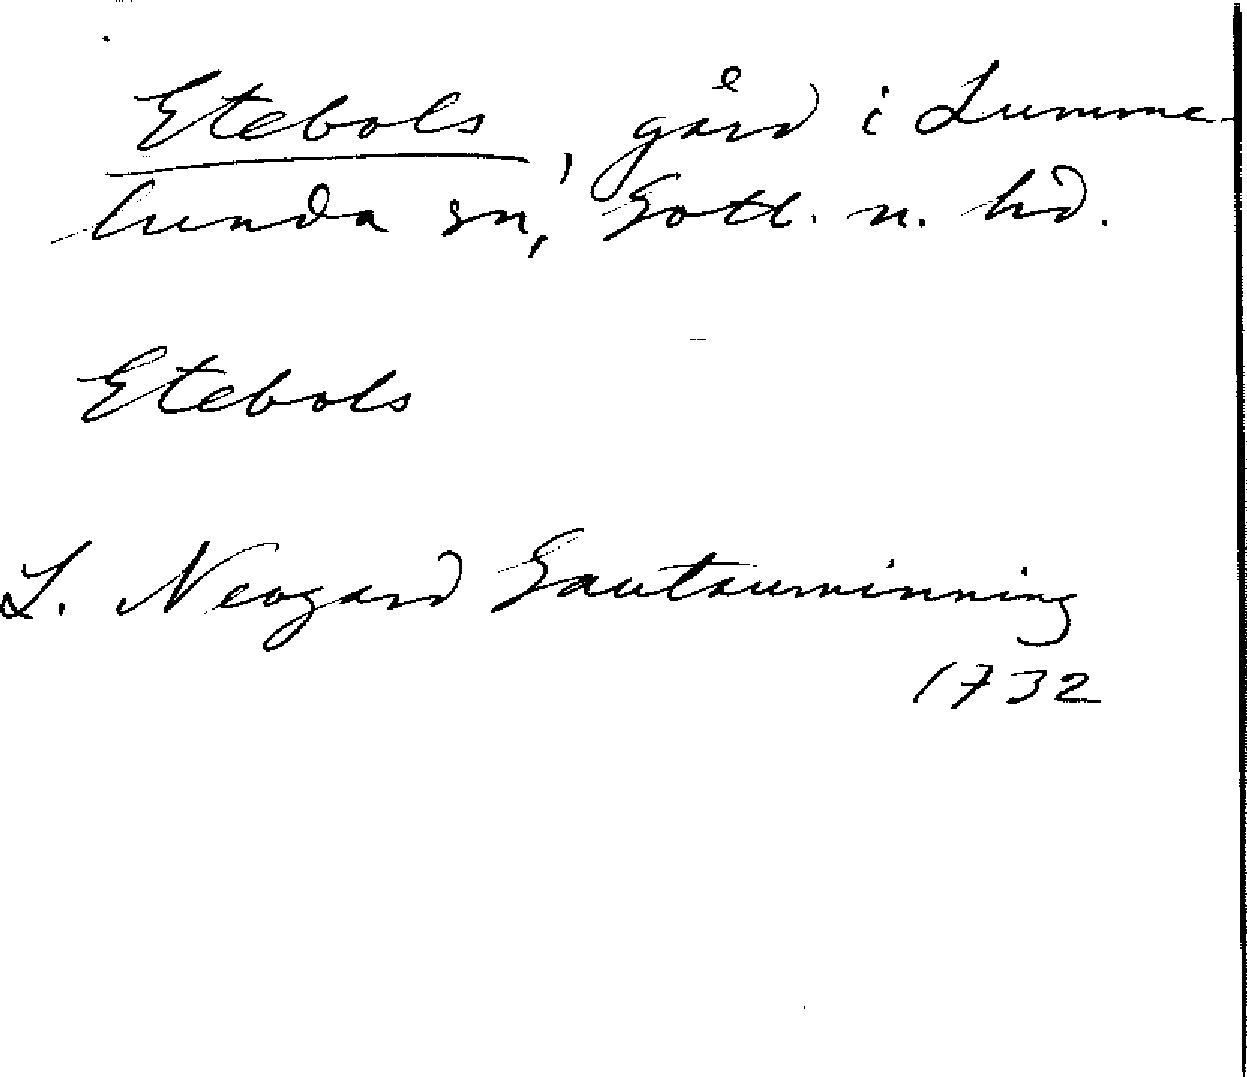 Etebols, gård i Lumme-
lunda sn, Gotl. n. hd.
Etebols
L. Neogard Gautauminning
1732